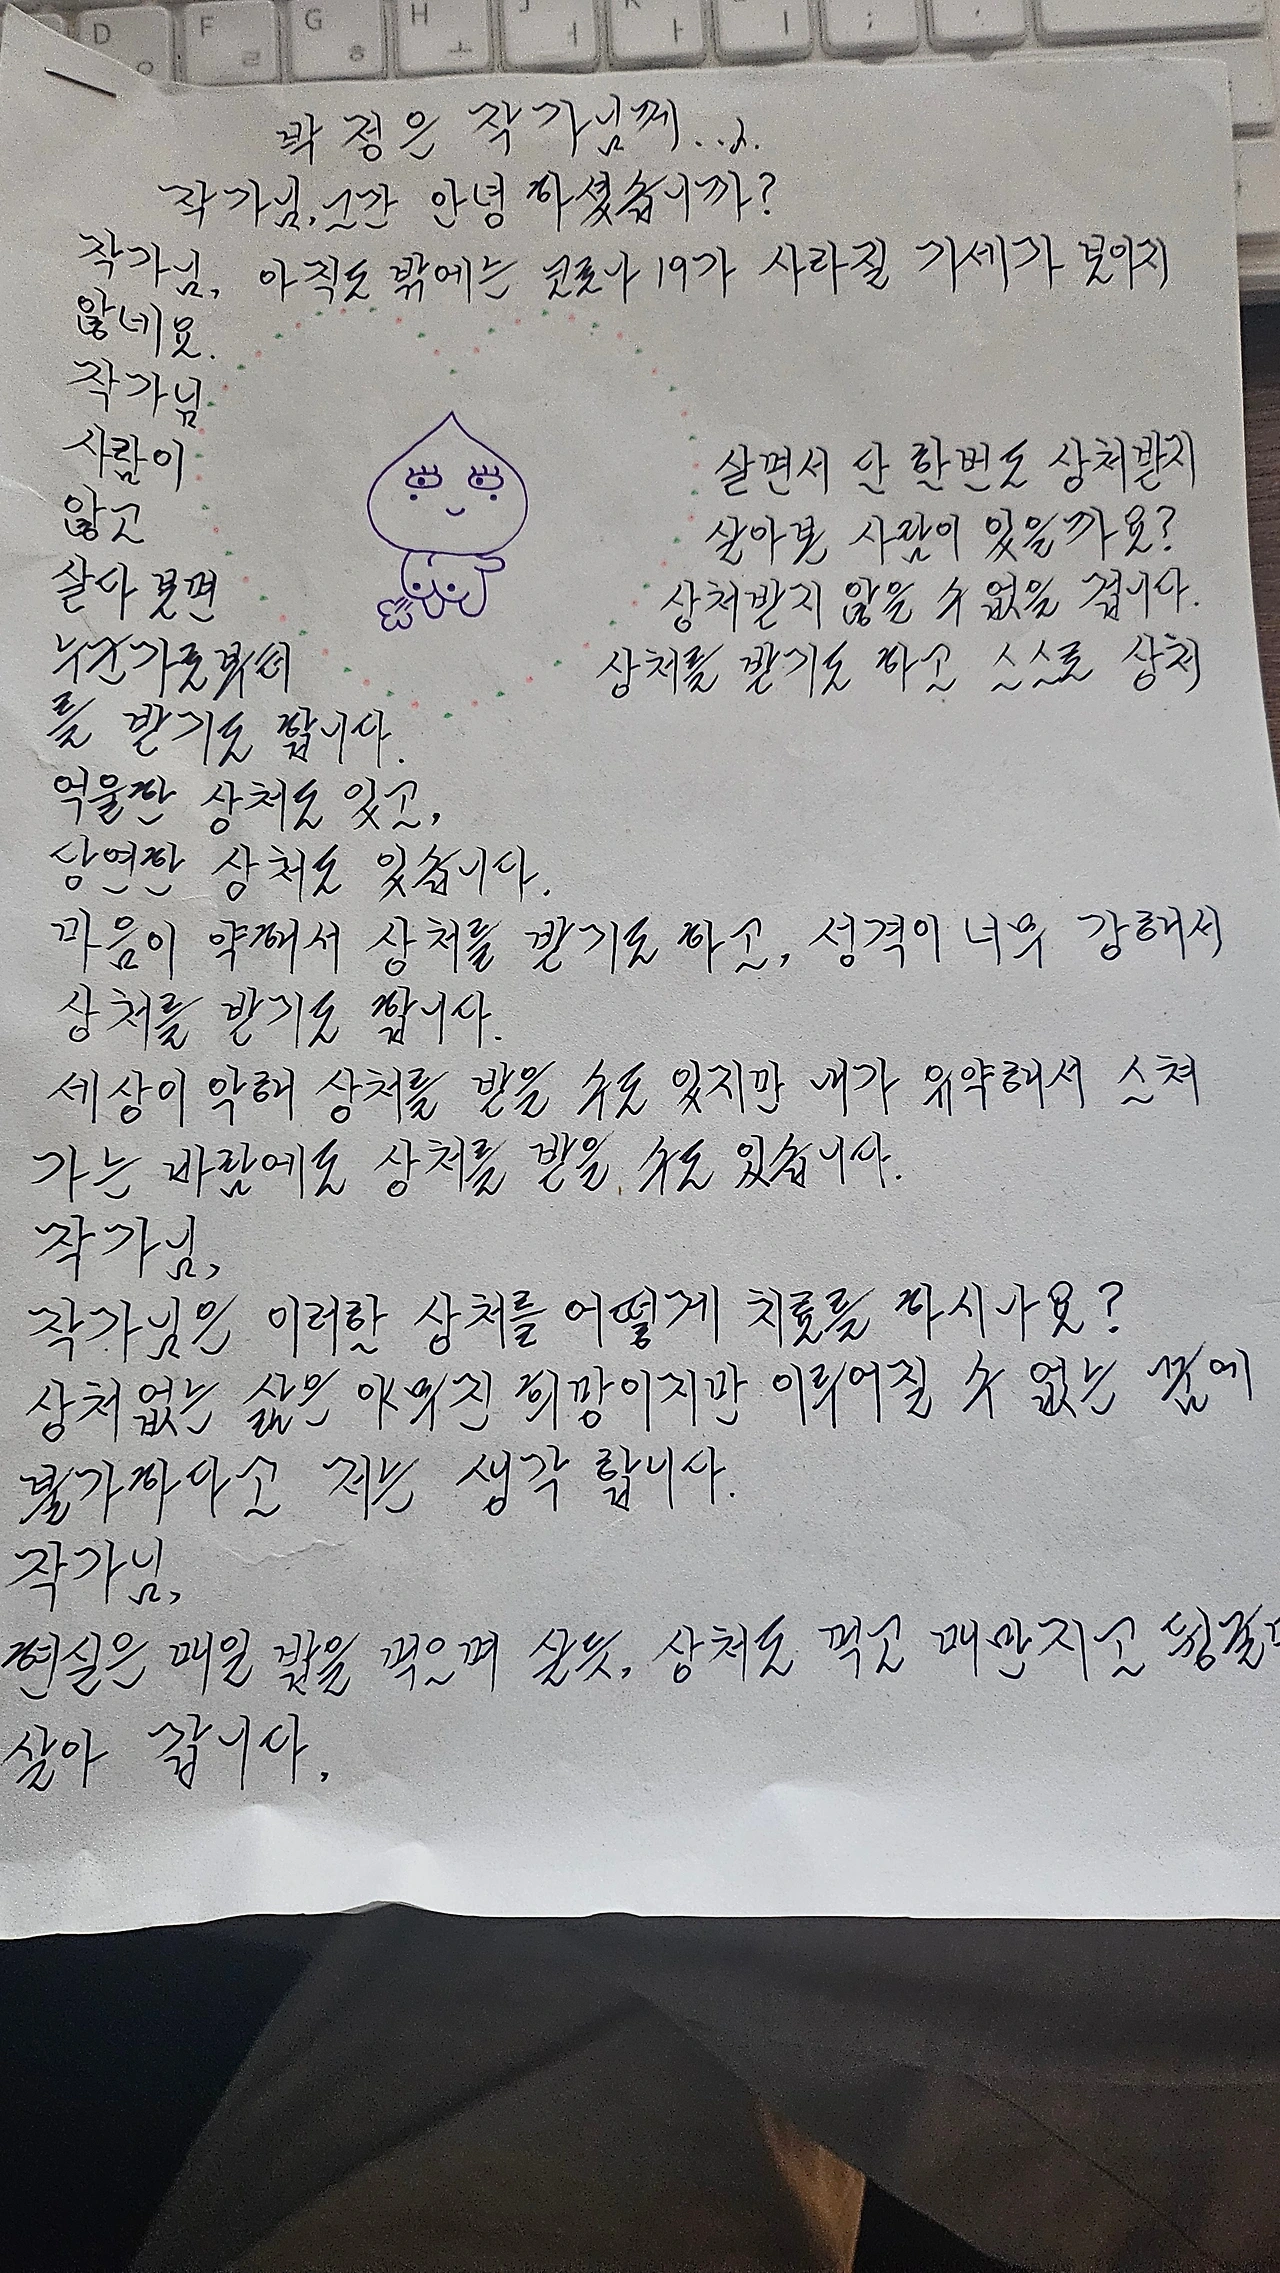 D F G H J K L ; '
ㅇ ㄹ ㅎ ㅗ ㅓ ㅏ ㅣ ;
박정은 작가님께...
작가님, 그간 안녕하셨습니까?
작가님, 아직도 밖에는 코로나19가 사라질 기세가 보이지
않네요.
작가님
사람이 살면서 단 한번도 상처받지
않고 살아본 사람이 있을까요?
살다보면 상처받지 않을 수 없을 겁니다.
누군가로부터 상처를 받기도 하고 스스로 상처
를 받기도 합니다.
억울한 상처도 있고,
당연한 상처도 있습니다.
마음이 약해서 상처를 받기도 하고, 성격이 너무 강해서
상처를 받기도 합니다.
세상이 악해 상처를 받을 수도 있지만 내가 유약해서 스쳐
가는 바람에도 상처를 받을 수도 있습니다.
작가님,
작가님은 이러한 상처를 어떻게 치료를 하시나요?
상처없는 삶은 야무진 희망이지만 이뤄어질 수 없는 꿈에
불가하다고 저는 생각 합니다.
작가님,
현실은 매일 밥을 먹으며 살듯, 상처도 먹고 매만지고 뒹굴며
살아 갑니다.